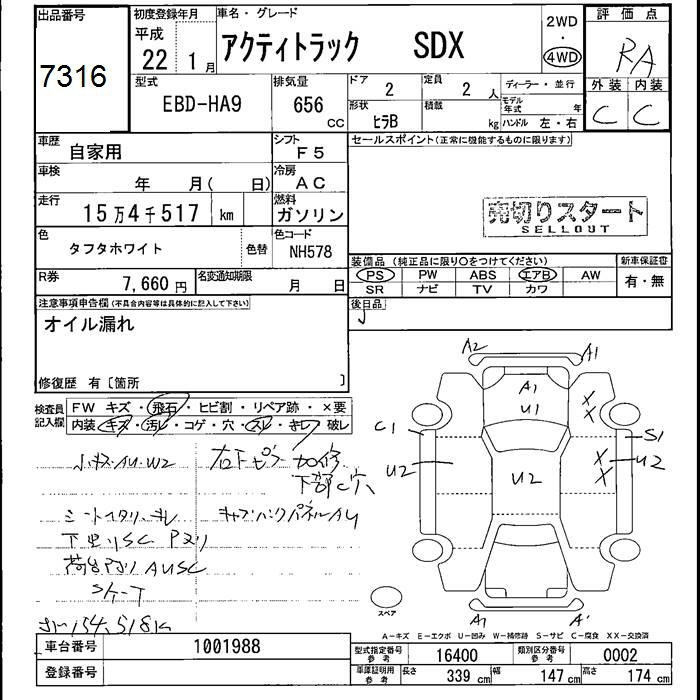 出品番号
7316
初度登録年月
平成
22 1月
車名・グレード
アクティトラック SDX
2WD
・
4WD
評価点
RA
型式
EBD-HA9
排気量
656
cc
ドア
2
定員
2 人
形状
ヒラB
積載
kg
ディーラー・並行
モデル年式 年
ハンドル 左・右
外装 内装
C C
車歴
自家用
シフト
F5
車検
年 月( 日)
冷房
AC
走行
15万4千517 km
燃料
ガソリン
色
タフタホワイト
色替
色コード
NH578
R券
7,660円
名変通知期限
月 日
セールスポイント(正常に機能するものに限ります)
売切りスタート
SELLOUT
装備品(純正品に限り○をつけてください)
PS PW ABS エアB AW
SR ナビ TV カワ
新車保証書
有・無
後日品
注意事項申告欄(不具合内容等は具体的に記入して下さい)
オイル漏れ
修復歴 有〔箇所 〕
検査員記入欄
FW キズ・飛石・ヒビ割・リペア跡・×要
内装・キズ・汚レ・コゲ・穴・スレ・キレ・破レ
小キズ・AU・W2
右下ピラー加修
下部C穴
下廻りSC
荷台 AUSC
154,518K
A2 A1
A1
U1
C1
S1
U2
U2
U2
A1 A'
スペア
A-キズ E-エクボ U-凹み W-補修跡 S-サビ C-腐食 XX-交換済
車台番号
1001988
登録番号
型式指定番号
参考
16400
類別区分番号
参考
0002
車庫証明用
参考
長さ 339 cm
幅 147 cm
高さ 174 cm